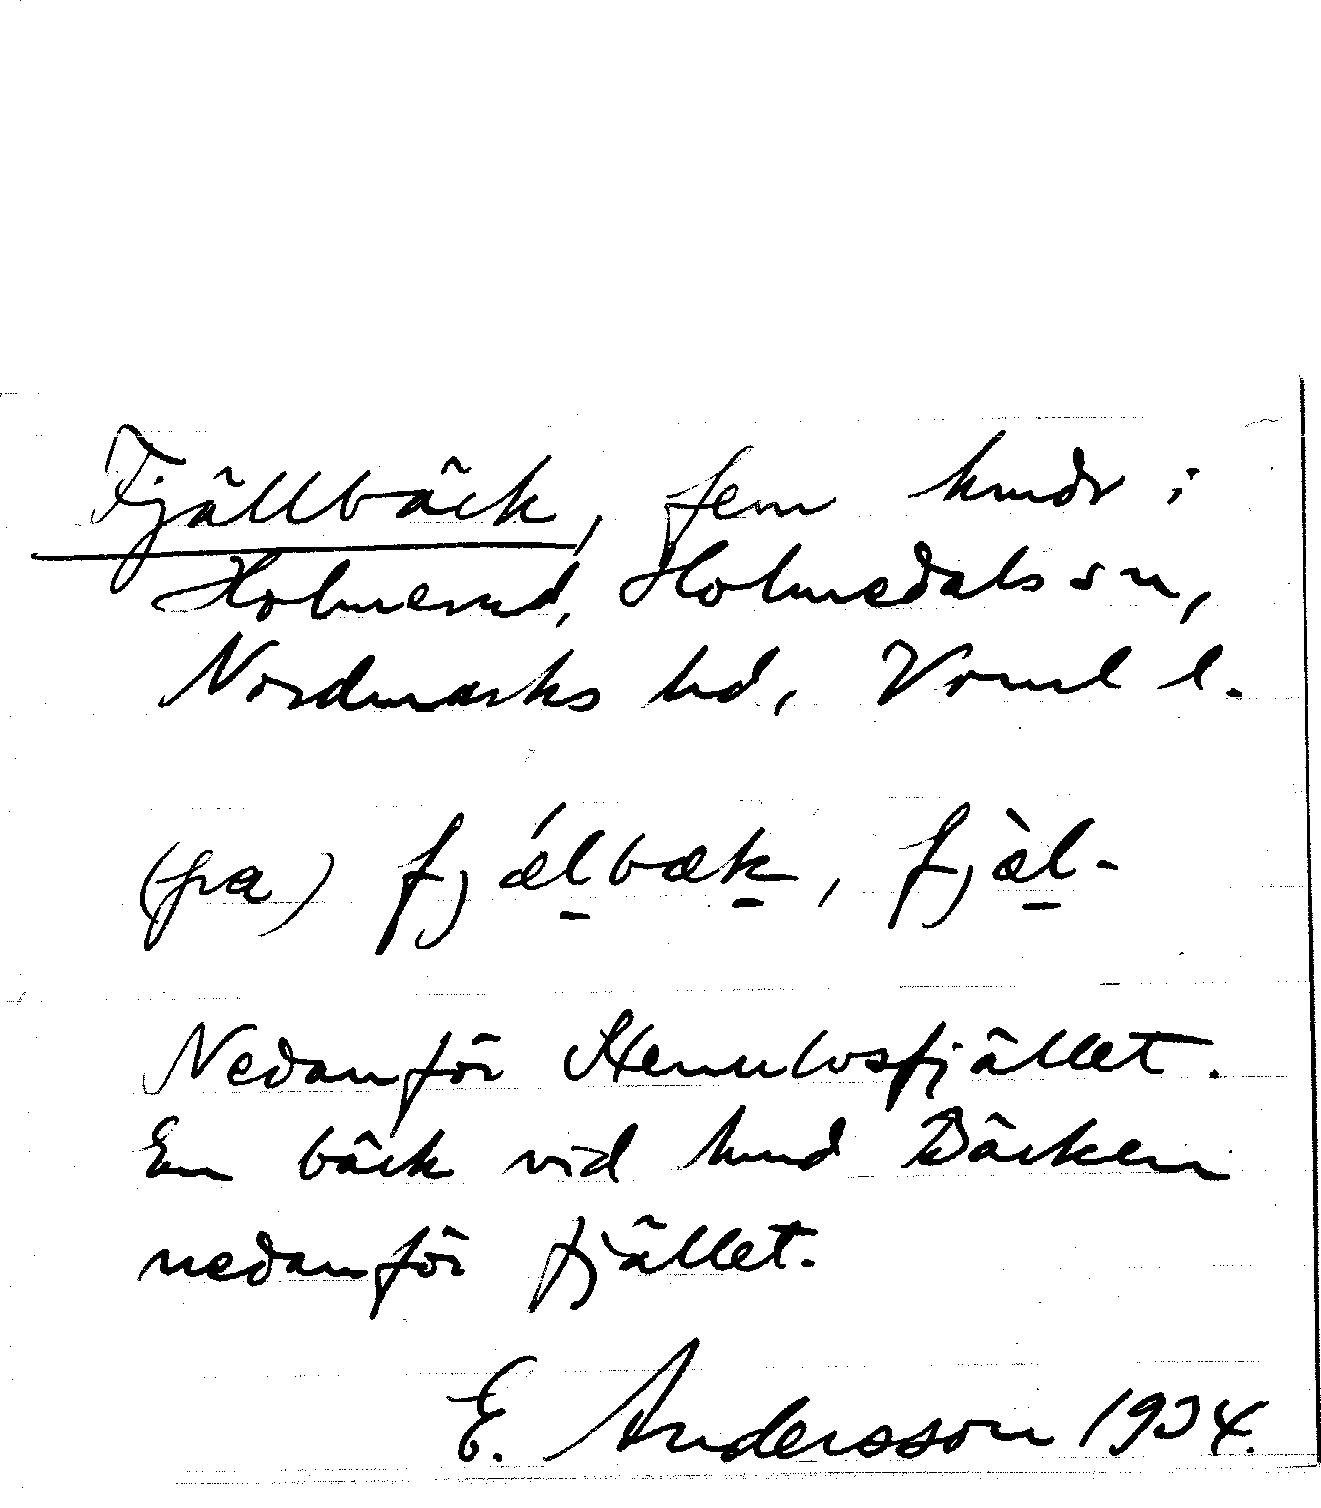 Fjällbäck, fem hmdr i
Holmerud, Holmedals sn,
Nordmarks hd, Vrml l.
(pα) fjǽlbæk, fjæ̀l-
Nedanför fjället.
En bäck vid hmd Bäcken
nedanför fjället.
E. Andersson 1934.